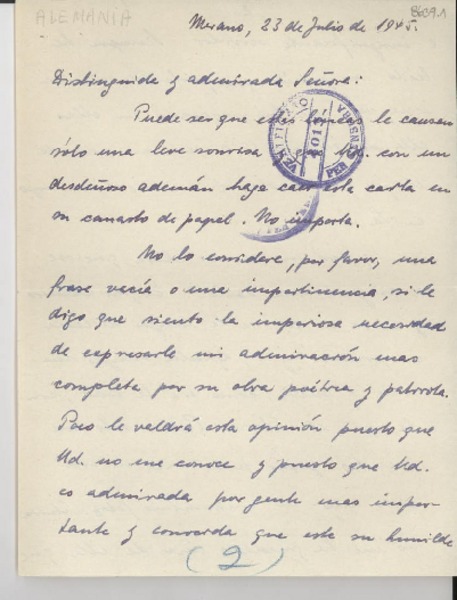 ALEMANIA
8659.1
Merano, 23 de Julio de 1945.
Distinguida y admirada Señora:
Puede ser que estas líneas le causen
sólo una leve sonrisa Ud. con un
desdeñoso ademán haga caer esta carta en
su canasto de papel. No importa.
VERIFICATO PER CENSURA
No lo considere, por favor, una
frase vacía o una impertinencia, si le
digo que siento la imperiosa necesidad
de expresarle mi admiración mas
completa por su obra poética y patriota.
Poco le valdrá esta opinión puesto que
Ud. no me conoce y puesto que Ud.
es admirada por gente mas impor-
tante y conocida que este su humilde
(2)